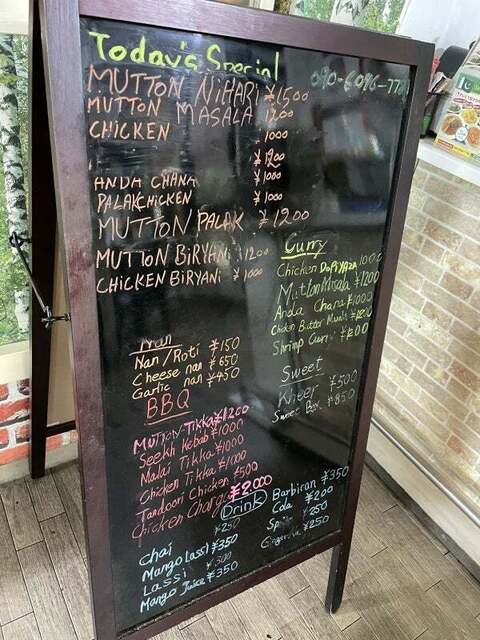 Today's Special
MUTTON NiHARi ¥1500
MUTTON MASALA 1200
CHICKEN 1000
¥1200
ANDA CHANA ¥1000
PALAKCHICKEN ¥1000
MUTTON PALAK ¥1200
MUTTON BiRYANi 1200
CHICKEN BiRYANi ¥1000
Curry
Chicken DoPiYAZA 1000
Mutton Masala ¥1200
Anda Chana ¥1000
Chicken Butter
Shrimp Curry ¥1200
Nan
Nan/Roti ¥150
Cheese nan ¥650
Garlic nan ¥450
Sweet
Kheer ¥500
Sweet Box ¥850
BBQ
Mutton Tikka ¥1200
Seekh Kebab ¥1000
Malai Tikka ¥1000
Chicken Tikka ¥1000
Tandoori Chicken ¥500
Chicken Charga ¥2000
Drink
Chai ¥250
Mango lassi ¥350
Lassi ¥300
Mango Juice ¥350
Barbican ¥350
Cola ¥200
¥250
¥250